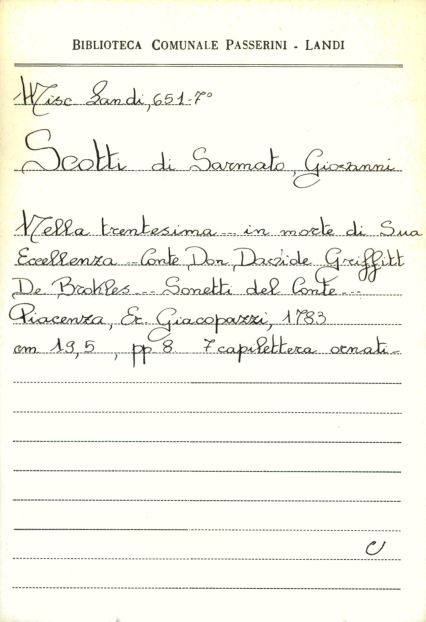 BIBLIOTECA COMUNALE PASSERINI - LANDI
Misc. Landi, 651-7°
Scotti di Sarmato, Giovanni
Nella trentesima ... in morte di Sua
Eccellenza ... Conte Don Davide Griffitt
De Brohles ... Sonetti del Conte ...
Piacenza, Er. Giacopazzi, 1783
cm 19,5 , pp 8 7 capilettera ornati -
C